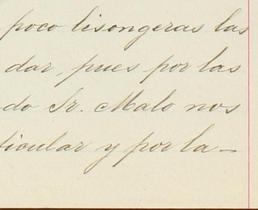 poco lisongeras las
dar, pues por las
do Sr. Malo nos
ticular y por la-